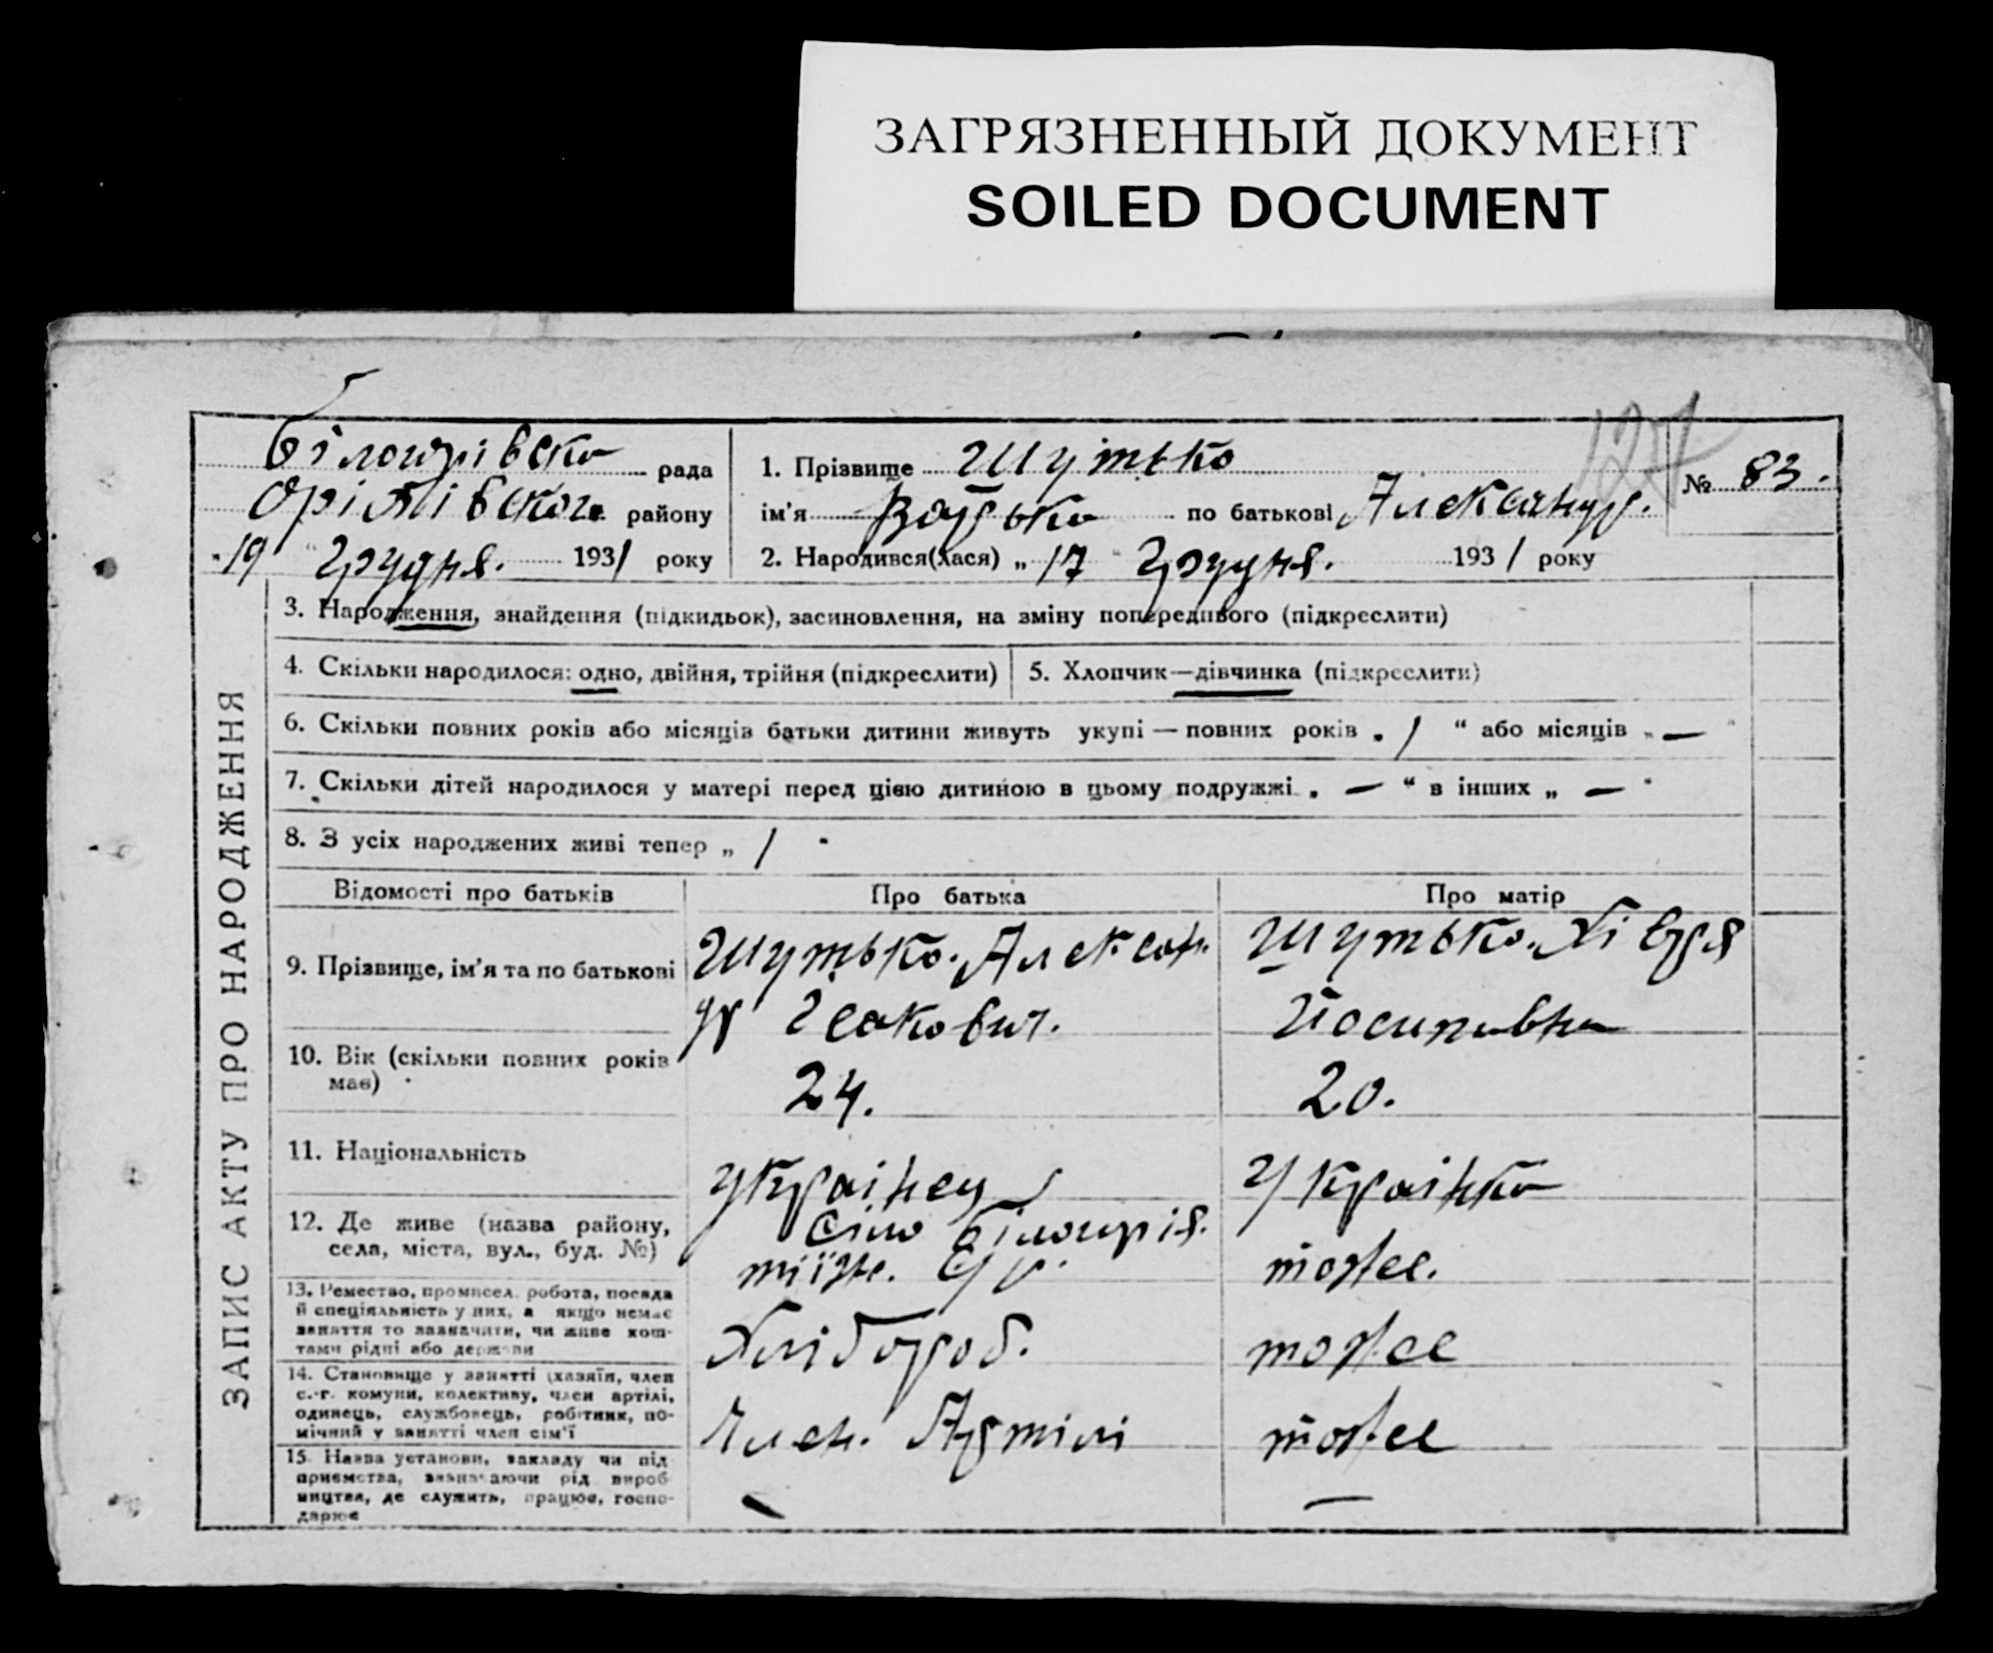 ЗАГРЯЗНЕННЫЙ ДОКУМЕНТ
SOILED DOCUMENT
127
Білогрівська рада
Оріхівського району
19 грудня. 1931 року
1. Прізвище Шутько
ім'я по батькові Александр.
2. Народився(лася) „ 17 " Грудня. 1931 року
№ 83.
ЗАПИС АКТУ ПРО НАРОДЖЕННЯ
3. Народження, знайдення (підкидьок), засиновлення, на зміну попереднього (підкреслити)
4. Скільки народилося: одно, двійня, трійня (підкреслити)
5. Хлопчик—дівчинка (підкреслити)
6. Скільки повних років або місяців батьки дитини живуть укупі — повних років „ 1 “ або місяців „ — "
7. Скільки дітей народилося у матері перед цією дитиною в цьому подружжі „ — “ в інших „ — "
8. З усіх народжених живі тепер „ 1 "
Відомості про батьків Про батька Про матір
9. Прізвище, ім'я та по батькові
Шутько. Алексан
др Ісакович.
Шутько. Хівря
Йосипивна
10. Вік (скільки повних років
має)
24. 20.
11. Національність
українец Українка
12. Де живе (назва району,
села, міста, вул., буд. №)
Сило Білогрія.
тоже.
13. Ремество, промисел, робота, посада
й спеціяльність у них, а якщо немає
заняття то зазначити, чи живе кош-
тами рідні або держави
Хлібороб. тоже
14. Становище у занятті (хазяїн, член
с.-г. комуни, колективу, член артілі,
одинець, службовець, робітник, по-
мічний у занятті член сім'ї
Член. Артілі тоже
15. Назва установи, закладу чи під
приємства, зазначаючи рід вироб
ництва, де служить, працює, госпо-
дарює
— —